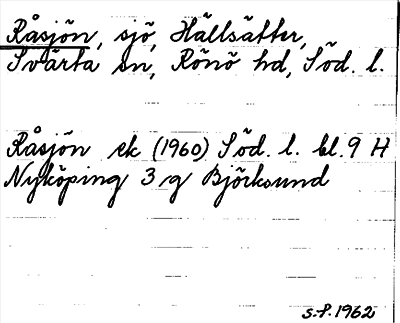 Råsjön, sjö, Hällsätter,
Svärta sn, Rönö hd, Söd. l.
Råsjön ek (1960) Söd. l. bl. 9 H
Nyköping 3 g Björksund
s.f. 1962